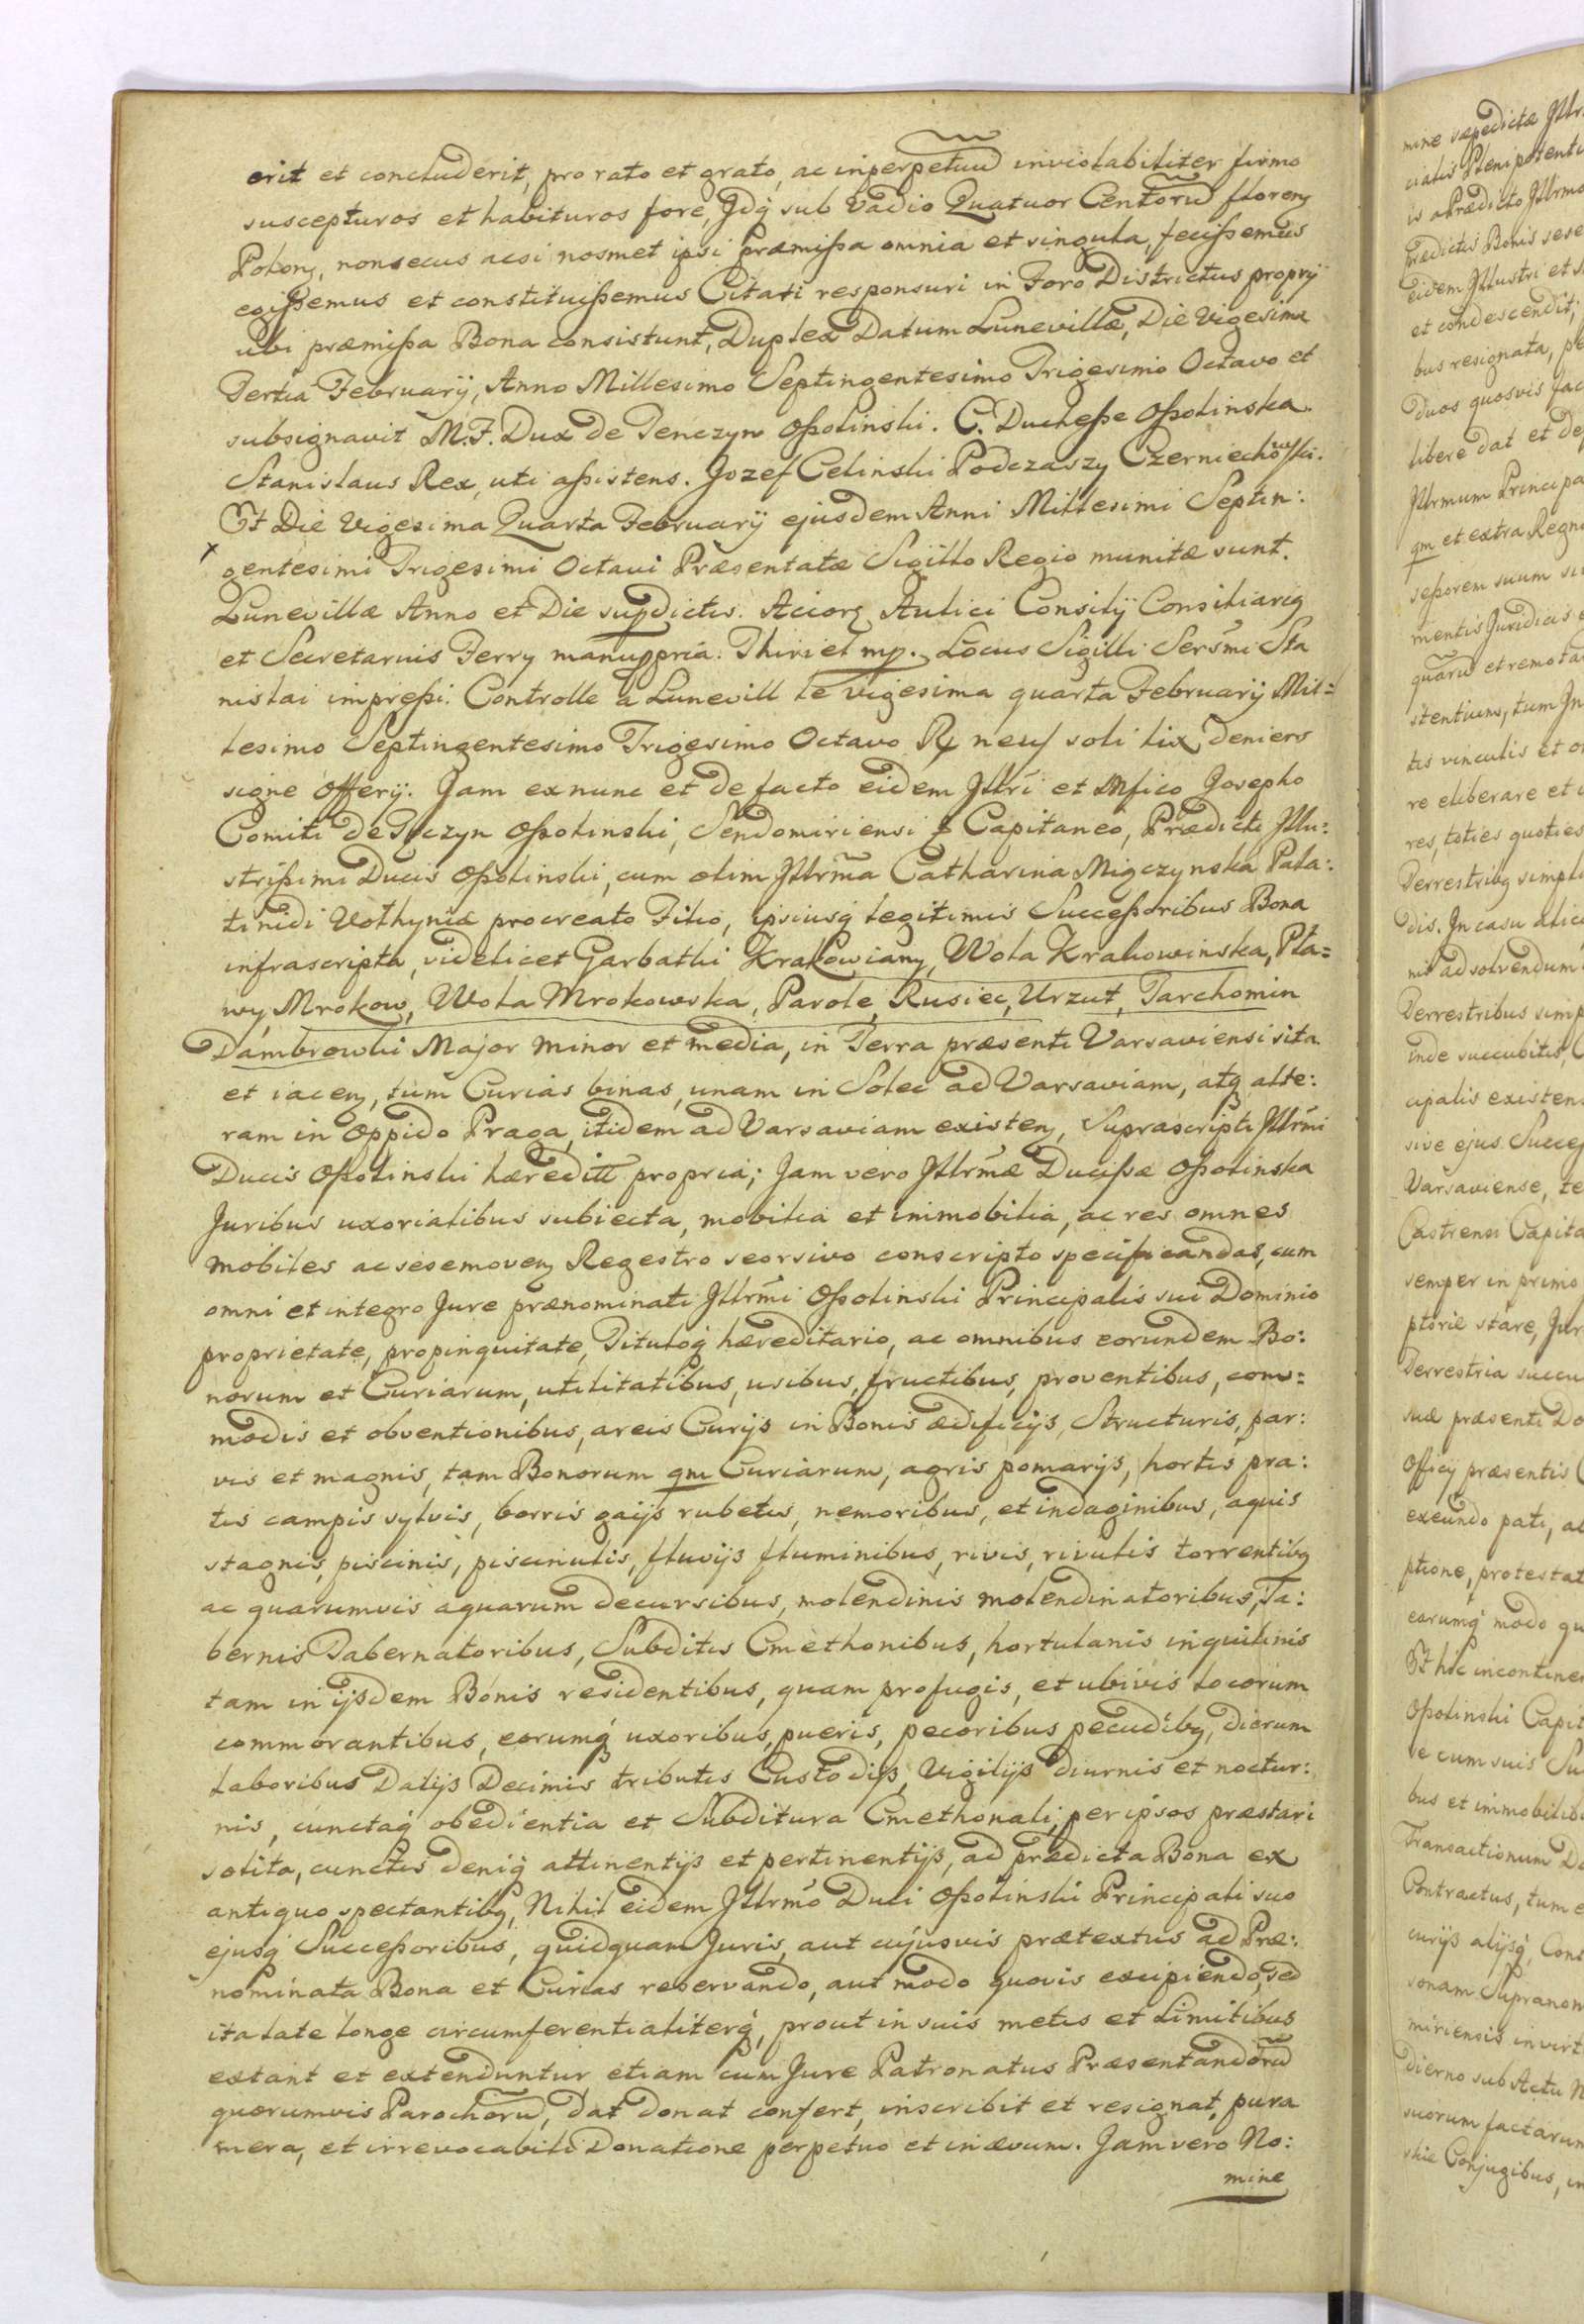 erit et concluderit, pro rato et grato, ac inperpetuu inviolabiliter firmo
suscepturos et habituros fore, Jdq sub Vadio Quatuor Centoru floreng
Polong, nonsecus acsi nosmet ipsi præmißa omnia et singula, fecißemus
egißemus et constituißemus Citati responsuri in Foro Districtus proprij
ubi præmißa Bona consistunt, Duplex Datum Lunevillæ, Die Vigesima
Tertia February, Anno Millesimo Septingentesimo Trigesimo Octavo et
subsignavit M.F. Dux de Tenczyn Oßolinski. C. Ducheße Oßolinska.
Stanislaus Rex, uti aßistens. Jozef Celinski Podczaszy Czerniechowski.
Et Die Vigesima Quarta February ejusdem Anni Millesimi Septin:
gentesimi Trigesimi Octavi Præsentatæ Sigillo Regio munitæ sunt.
Lunevillæ Anno et Die supdictis. Aciorg Aulici Consilij Consiliarig
et Secretarius Ferry manuppria. Thiriet mp. Locus Sigilli Sersmi Sta
nislai impreßi. Controlle a Lunevill le vigesima quarta February Mil=
lesimo Septingentesimo Trigesimo Octavo Rx neuf soli lix deniers
signe Offery. Jam exnunc et de facto eidem Jllri et Mfico Josepho
Comiti de Tęczyn Oßolinski, Sendomiriensi Capitaneo, Prædicti Jllu:
strißimi Ducis Oßolinski, cum olim Jllrma Catharina Miączynska Pala:
tinidi Volhyniæ procreato Filio, ipsiusq legitimis Succeßoribus Bona
infrascripta, videlicet Garbatki Krakowiany, Wola Krakowinska, Pła=
wy, Mrokow, Wola Mrokowska, Parole, Rusiec, Urzut, Tarchomin
Dambrowki Major Minor et media, in Terra præsenti Varsaviensi sita
et iaceng, tum Curias binas, unam in Solec ad Varsaviam, atq alte:
ram in Oppido Praga, itidem ad Varsaviam existeng, Suprascripti Jllrmi
Ducis Oßolinski hæreditt propria; Jam vero Jllrmæ Ducißæ Oßolinska
Juribus uxorialibus subiecta, mobilia et immobilia, ac res omnes
mobiles ac sesemoveng Regestro seorsivo conscripto specificandas, cum
omni et integro Jure prænominati Jllrmi Oßolinski Principalis sui Dominio
proprietate, propinquitate, Tituloq hæreditario, ac omnibus eorundem Bo:
norum et Curiarum, utilitatibus, usibus, fructibus, proventibus, com=
modis et obventionibus, areis Curijs in Bonis ædificijs, Structuris, par:
vis et magnis, tam Bonorum qm Curiarum, agris pomarijs, hortis pra:
tis campis sylvis, borris gaijs rubetis, nemoribus, et indaginibus, aquis
stagnis, piscinis, piscinulis, fluvijs fluminibus, rivis, rivulis torrentibg
ac quarumvis aquarum decursibus, molendinis molendinatoribus, Ta:
bernis Tabernatoribus, Subditis Cmethonibus, hortulanis inquilinis
tam in ijsdem Bonis residentibus, quam profugis, et ubivis locorum
commorantibus, eorumq uxoribus, pueris, pecoribus pecudibg, dierum
laboribus Datijs Decimis tributis Custodijs, Vigilijs diurnis et noctur:
nis, cunctaq obedientia et Subditura Cmethonali, per ipsos præstari
solita, cunctis deniq attinentijs et pertinentijs, ad prædicta Bona ex
antiquo spectantibg, Nihil eidem Jllrmo Duci Oßolinski Principali suo
ejusq Succeßoribus, quidquam Juris, aut cujusvis prætextus ad Præ:
nominata Bona et Curias reservando, aut modo quovis excipiendo, sed
ita late longe circumferentialiterq, prout in suis metis et Limitibus
extant et extenduntur etiam cum Jure Patronatus Præsentandoru
quorumvis Parochoru, dat donat confert, inscribit et resignat, pura
mera, et irrevocabili Donatione perpetuo et inævum. Jam vero No:
mine
mine sæpedictæ Jllr
cialis Plenipotenti
is a Prædicto Jllrmo
prædictis Bonis sese
eidem Jllustri et
et condescendit,
bus resignata, pe
duos quosvis fac
libere dat et de
Jllrmum Principa
qm et extra Regn
seßorem suum
mentis Juridicis
quaru et remota
stentium, tum Jn
tis vinculis et o
re eliberare et
res, toties quoties
Terrestribg simpl
dis. Jn casu alic
ni ad solvendum
Terrestribus simp
inde succubitis,
cipalis existens
sive ejus Succeß
Varsaviense, te
Castrensi Capita
semper in primo
ptorie stare, Jur
Terrestria succu
suæ præsenti Do
Officij præsentis
exeundo pati, ac
ptione, protestat
earumq modo qu
Et hic incontine
Oßolinski Capit
se cum suis Su
bus et immobilib
Transactionum D
Contractus, tum e
curijs alijsq, Cont
sonam Supranom
miriensis in virt
dierno sub Actu N
suorum factarum
skie Conjugibus, in